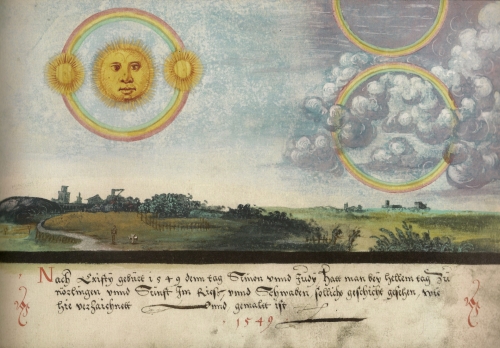 Nach Cristy gebürt 1549 denn tag Simon unnd Judy hatt man bey hellem tag zů
nörlingen unnd sunst Im Rieß unnd Schwaben sollich geschicht gesehen, wie
hie verzaichnett unnd gemalet ist
1549